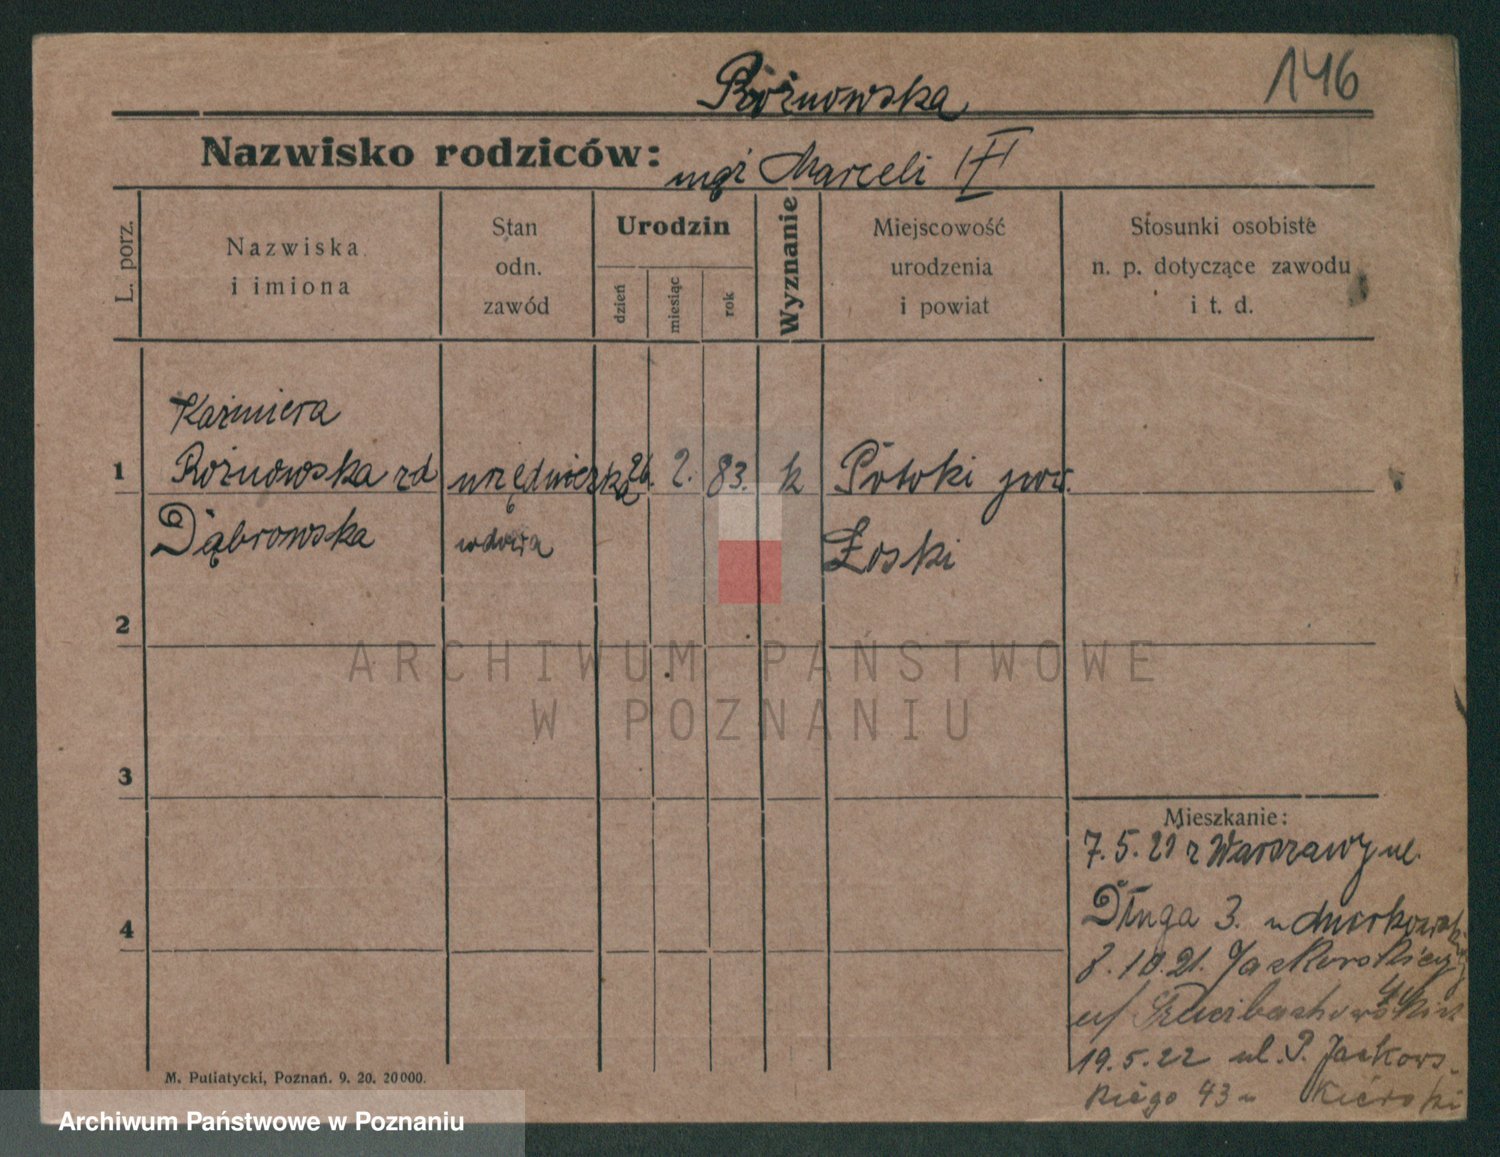 Różnowska
146
Nazwisko rodziców:
mąż Marceli
L. porz.
Nazwiska
i imiona
Stan
odn.
zawód
Urodzin
dzień
miesiąc
rok
Wyznanie
Miejscowość
urodzenia
i powiat
Stosunki osobiste
n. p. dotyczące zawodu
i t. d.
Kaźmiera
1
Rożnowska zd
urzędniczka
26.
2.
83.
k
Potoki pow.
Dąbrowska
wdowa
Łoski
2
ARCHIWUM PAŃSTWOWE
W POZNANIU
3
4
Mieszkanie:
7. 5. 21 z Warszawy ul.
Długa 3. u
8. 10. 21. Jackowskiego
44
19. 5. 22 ul. P. Jackows-
kiego 43 u
M. Putiatycki, Poznań. 9. 20. 20000.
Archiwum Państwowe w Poznaniu